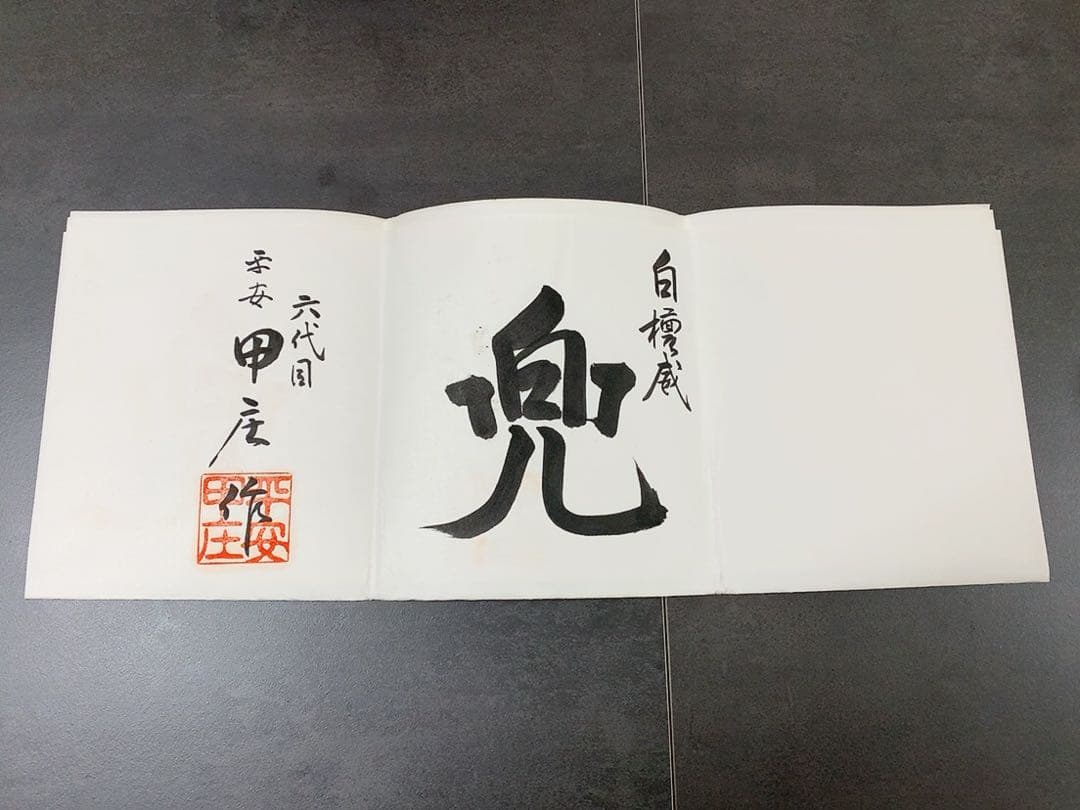 白檀威
兜
六代目
平安 甲庄 作
平安
甲庄